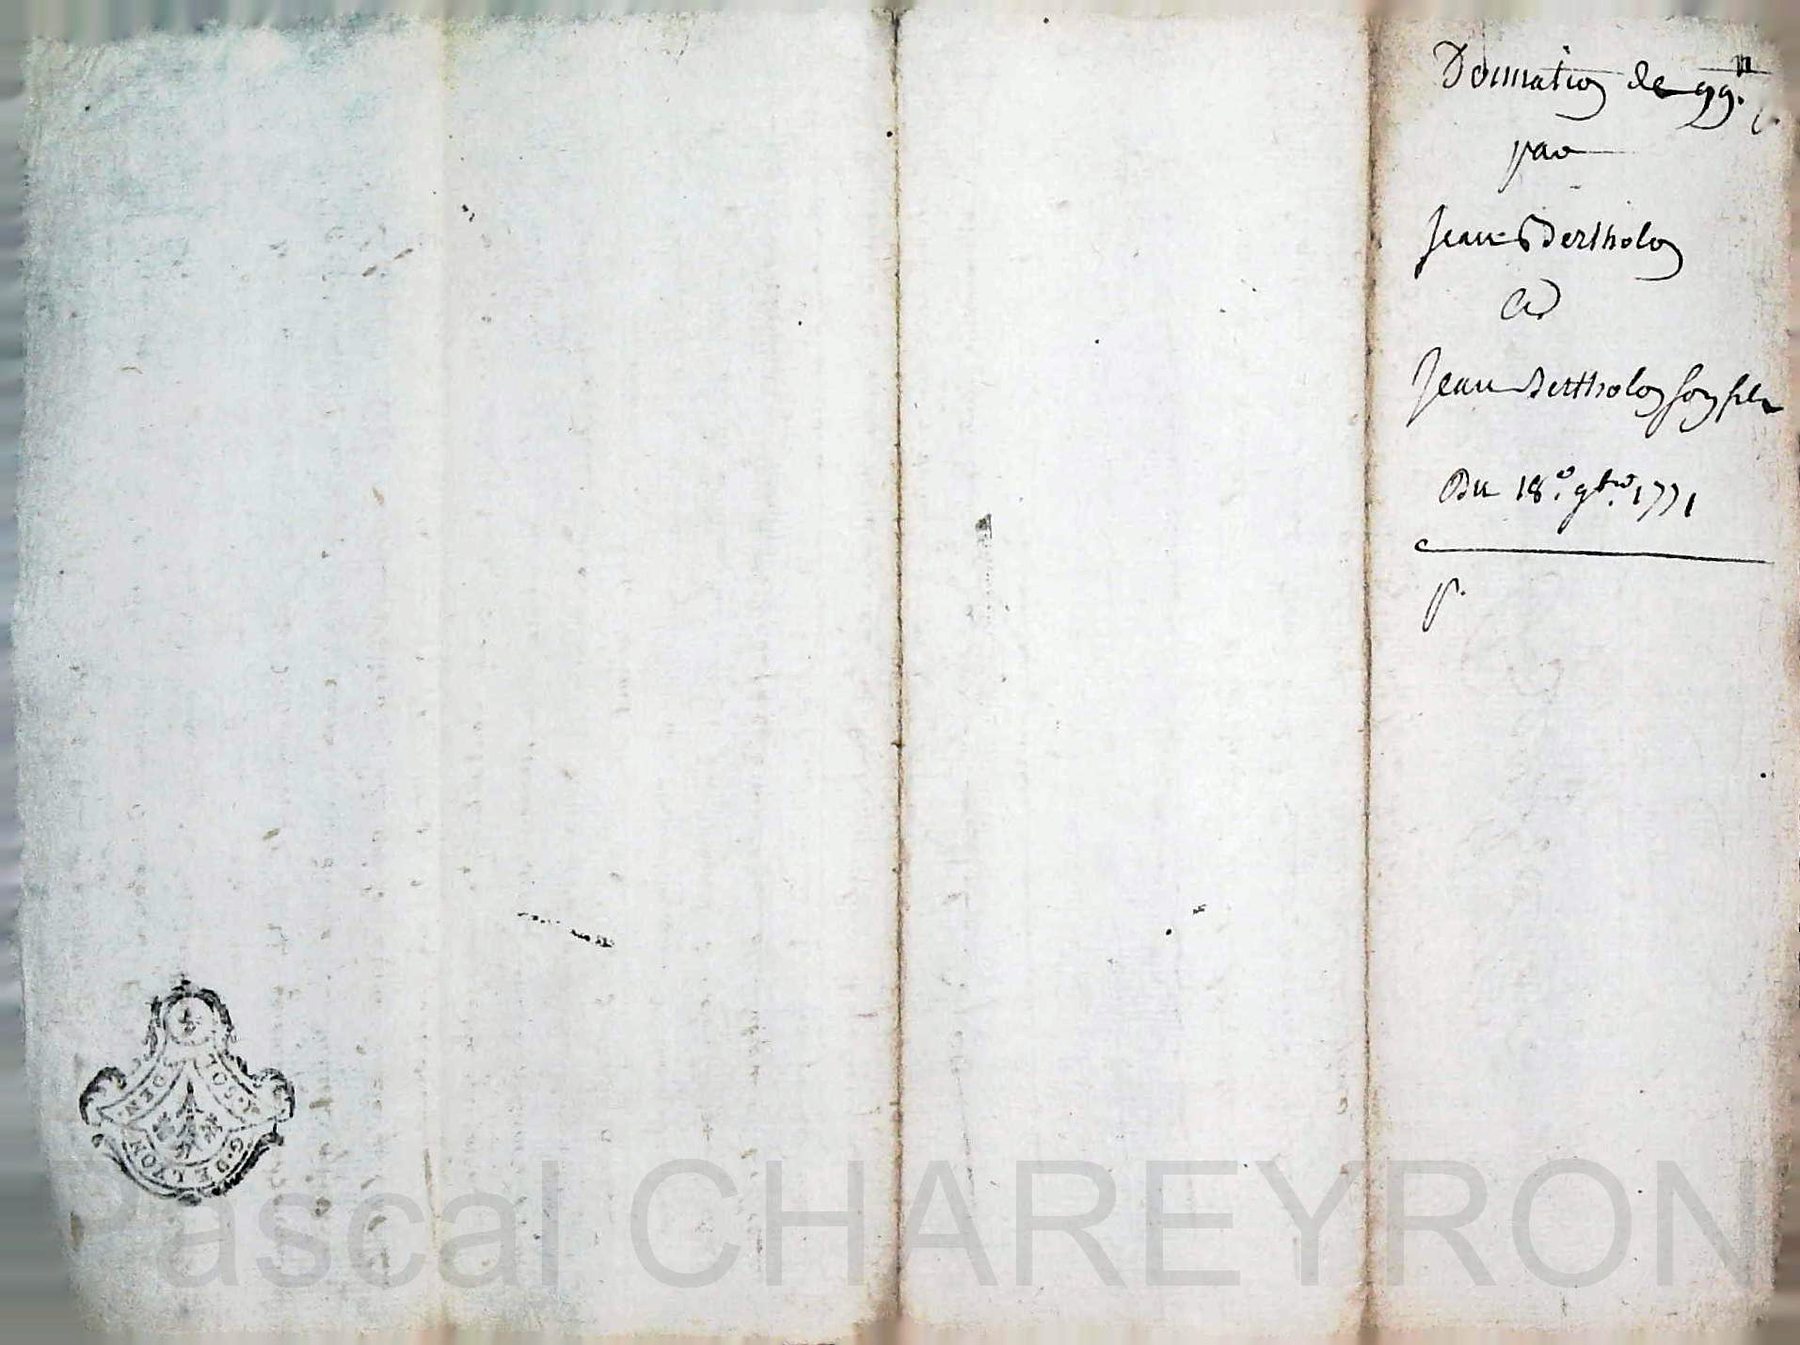 Donnation de 99.tt
par
Jean Bertholon
A
Jean Bertholon son fils
Du 18.e 9bre 1771
p.
IOS. T.
DEN.
G. DE LYON
Pascal CHAREYRON